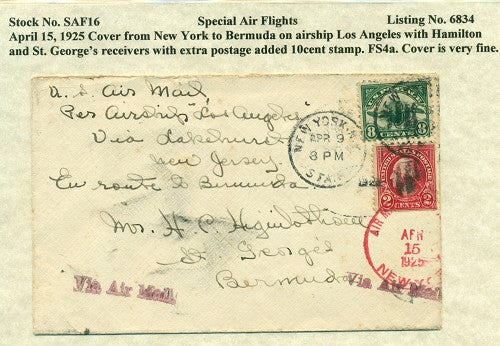 Stock No. SAF16 Special Air Flights Listing No. 6834
April 15, 1925 Cover from New York to Bermuda on airship Los Angeles with Hamilton
and St. George's receivers with extra postage added 10cent stamp. FS4a. Cover is very fine.
U.S. Air Mail
Per Airship "Los Angeles"
Via Lakehurst
New Jersey.
En route to Bermuda
Mrs. H. C.
St. George's
Bermuda
NEW YORK, N.Y.
APR 9
8 PM
STA.
1925
8 CENTS 8
2 CENTS 2
AIR
APR
15
1925
NEW
Via Air Mail
Via Air Mail